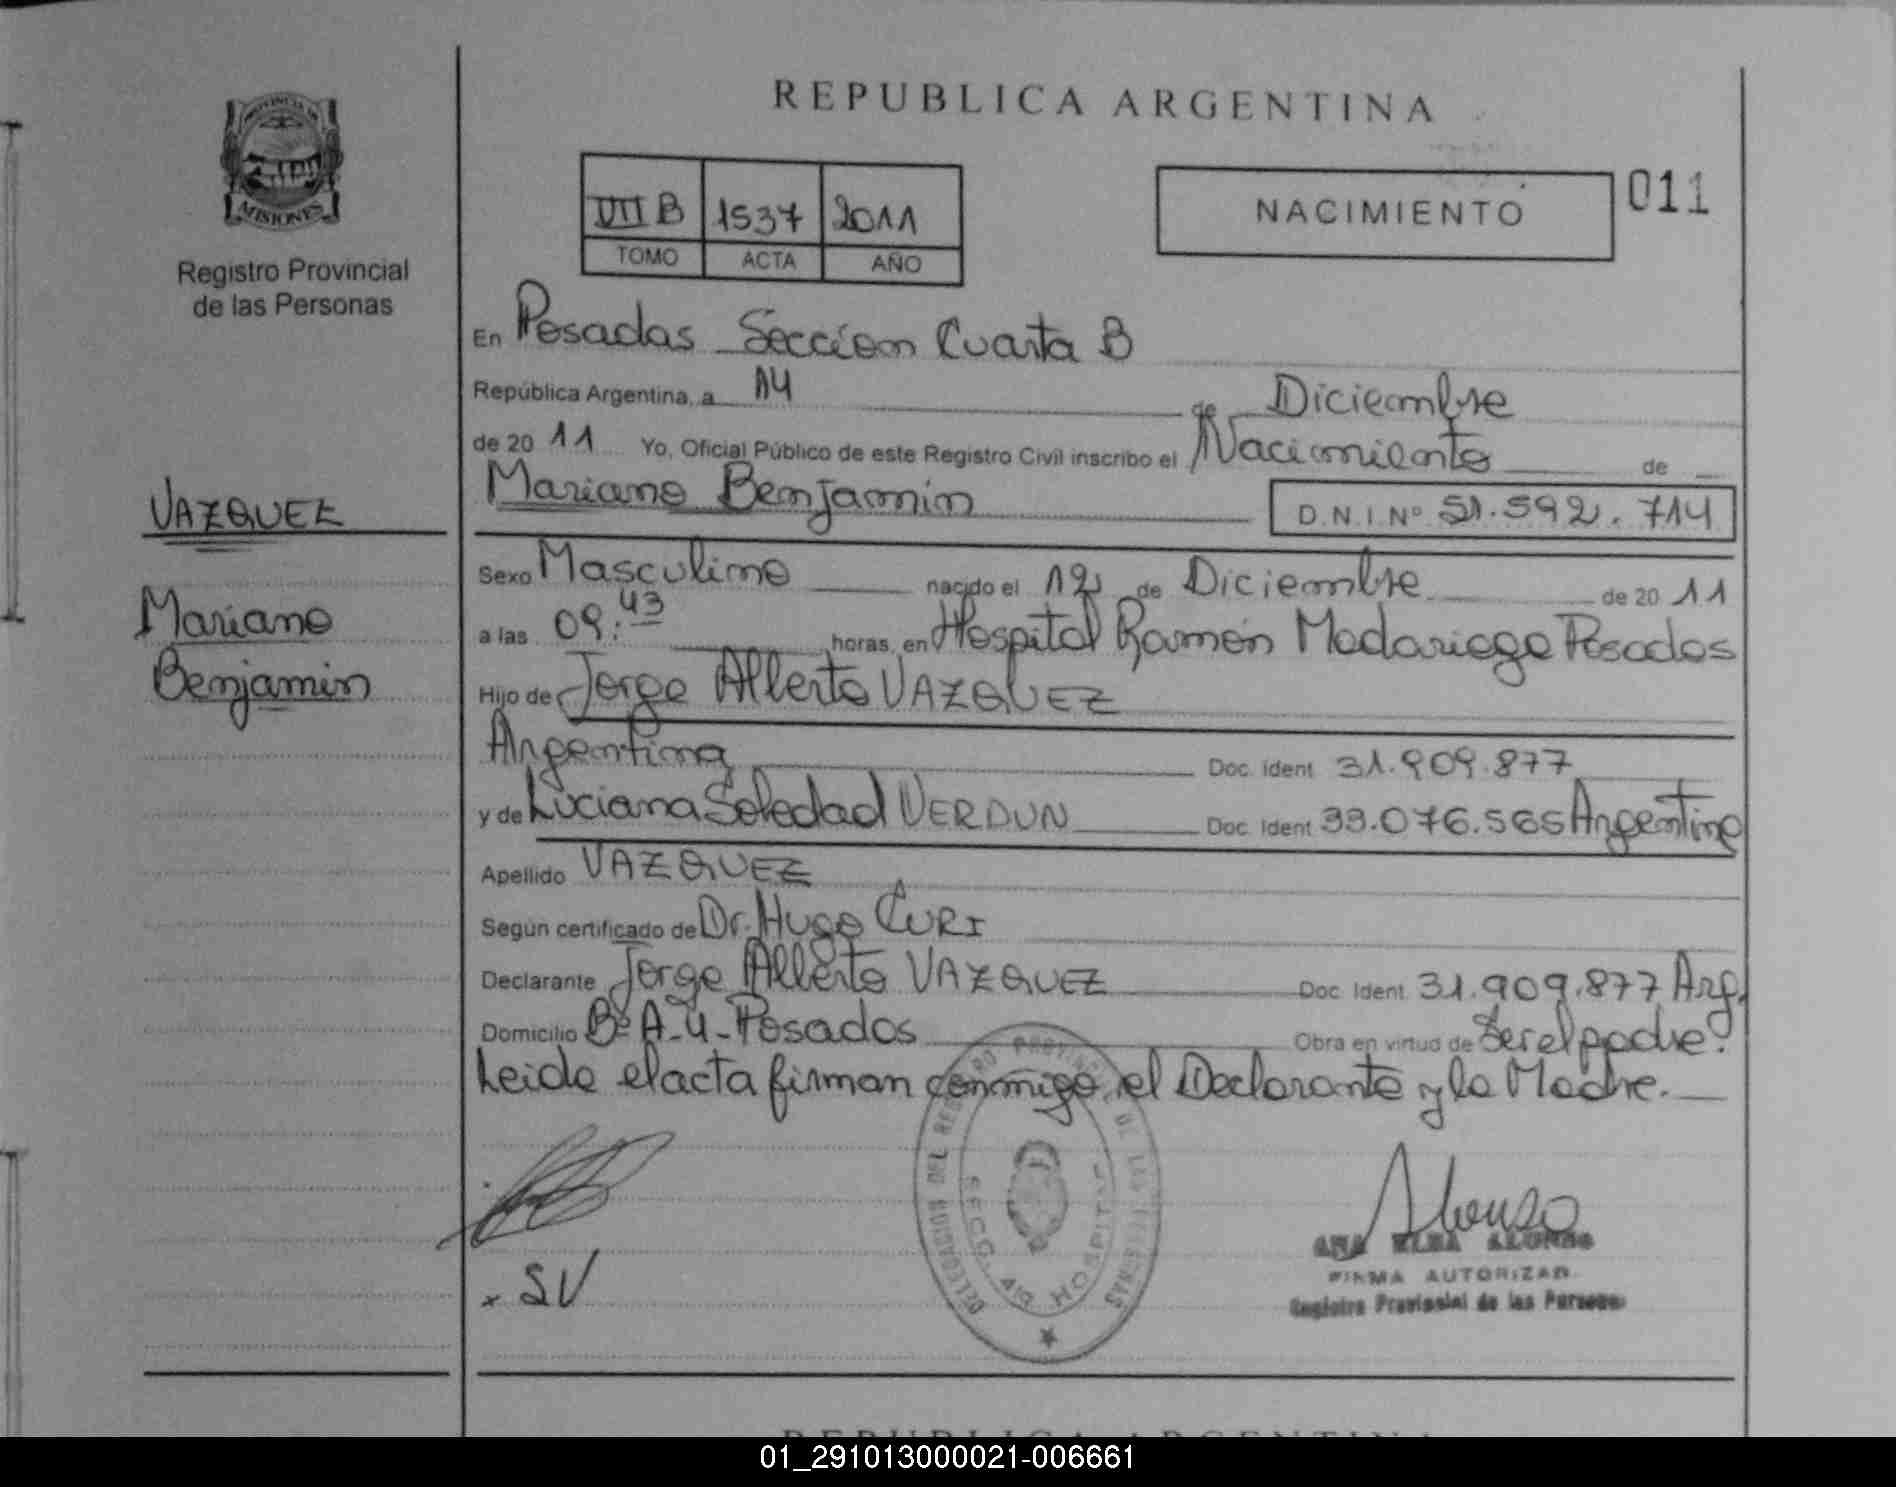 REPUBLICA ARGENTINA
PROVINCIA DE
MISIONES
Registro Provincial
de las Personas
VIII B 1537 2011
TOMO ACTA AÑO
NACIMIENTO
011
En Posadas Sección Cuarta B
República Argentina, a 14 de Diciembre
de 20 11 Yo, Oficial Público de este Registro Civil inscribo el Nacimiento de
Mariano Benjamin D.N.I.Nº 51.592.714
VAZQUEZ
Mariano
Benjamin
Sexo Masculino nacido el 12 de Diciembre de 20 11
a las 09:43 horas, en Hospital Ramón Madariaga Posadas
Hijo de Jorge Alberto VAZQUEZ
Argentina Doc. Ident 31.909.877
y de Luciana Soledad VERDUN Doc. Ident 33.076.565 Argentina
Apellido VAZQUEZ
Según certificado de Dr. Hugo CURI
Declarante Jorge Alberto VAZQUEZ Doc. Ident. 31.909.877 Arg.
Domicilio Bº A-4-Posadas Obra en virtud de Ser el padre.
Leida el acta firman conmigo el Declarante y la Madre.
DELEGACION DEL REGISTRO PROVINCIAL DE LAS PERSONAS
SECC. 4ta HOSPITAL
SV
Alonso
ANA ELBA ALONSO
FIRMA AUTORIZAD
Registro Provincial de las Personas
REPUBLICA ARGENTINA
01_291013000021-006661